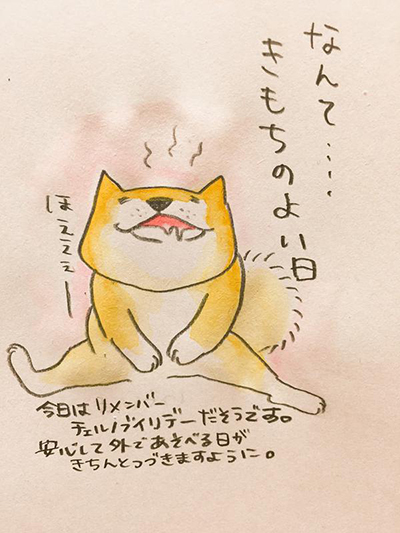 なんて……
きもちのよい日
ほえええー
今日はリメンバー
チェルノブイリデーだそうです。
安心して外であそべる日が
きちんとつづきますように。